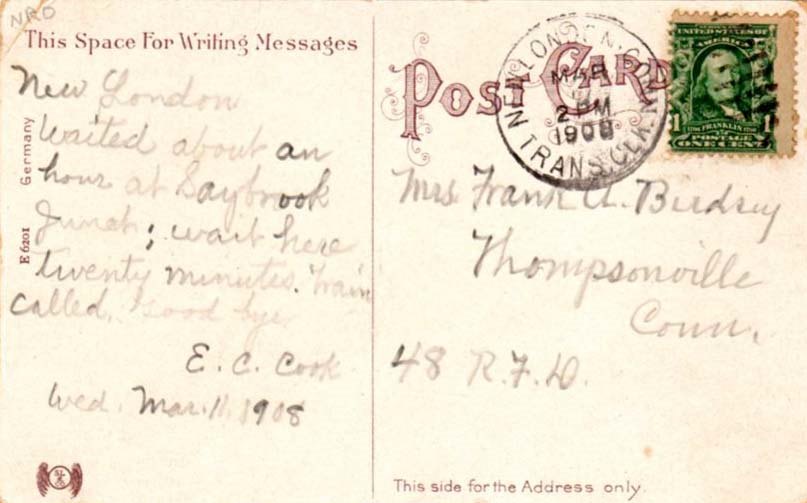 NRO
This Space For Writing Messages
New London
Waited about an
hour at Saybrook
Junct; wait here
twenty minutes. Train
called. Good bye
E. C. Cook
Wed. Mar. 11. 1908
Germany
E 6201
POST CARD
NEW LONDON, CONN.
MAR
2 PM
1908
TRANS. CLK.
UNITED STATES OF
AMERICA
1 FRANKLIN 1
POSTAGE
ONE CENT
Mrs Frank A. Birdsey
Thompsonville
Conn.
48 R.F.D.
This side for the Address only.